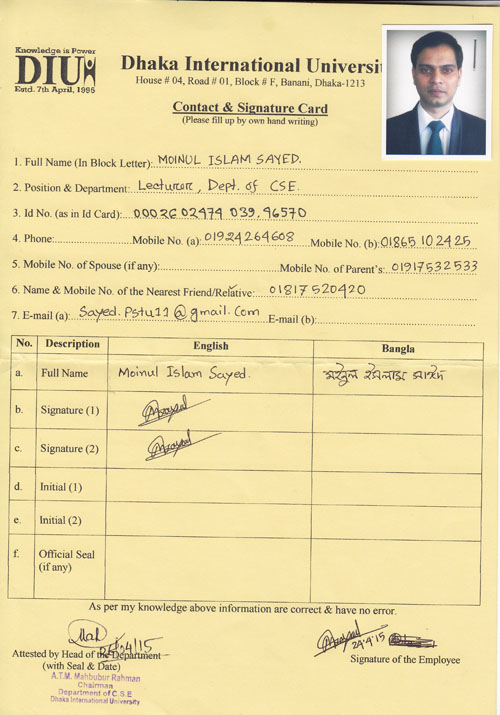 Knowledge is Power
DIU
Estd. 7th April, 1995
Dhaka International Universit
House # 04, Road # 01, Block # F, Banani, Dhaka-1213
Contact & Signature Card
(Please fill up by own hand writing)
1. Full Name (In Block Letter): MOINUL ISLAM SAYED.
2. Position & Department: Lecturer, Dept. of CSE.
3. Id No. (as in Id Card): 000260 2474 039.96570
4. Phone: Mobile No. (a): 01924264608 Mobile No. (b): 01865102425
5. Mobile No. of Spouse (if any): Mobile No. of Parent's: 01917532533
6. Name & Mobile No. of the Nearest Friend/Relative: 01817520420
7. E-mail (a): Sayed.Pstu11@gmail.com E-mail (b):
No. Description English Bangla
a. Full Name Moinul Islam Sayed. মইনুল ইসলাম সাঈদ
b. Signature (1)
c. Signature (2)
d. Initial (1)
e. Initial (2)
f. Official Seal
(if any)
As per my knowledge above information are correct & have no error.
29.4.15
Attested by Head of the Department
(with Seal & Date)
Signature of the Employee
A.T.M. Mahbubur Rahman
Chairman
Department of C.S.E
Dhaka International University